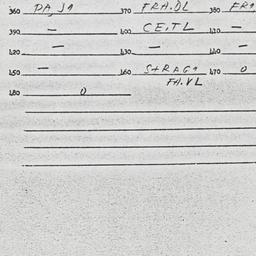 360 PAJA 370 FRA.DL 380 FRA
390 — 400 CE.TL 410 —
420 — 430 — 440 —
450 — 460 S+RAGA 470 0
FA.VL
480 0